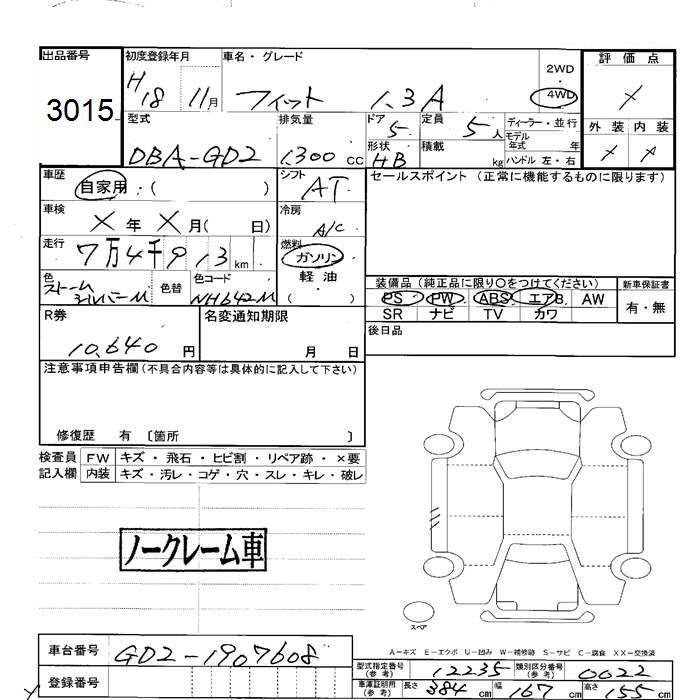 出品番号 初度登録年月 車名・グレード 2WD ・ 4WD 評価点
3015 H18 11月 フィット 1.3A
型式 排気量 ドア 定員 ディーラー・並行 外装 内装
DBA-GD2 1300 CC 5 5人 モデル年式 年
形状 HB 積載 kg ハンドル 左・右
車歴 自家用・( ) シフト AT セールスポイント (正常に機能するものに限ります)
車検 X 年 X 月( 日) 冷房 A/C
走行 7万4千913 km 燃料 ガソリン 軽油 ( )
色 ストームシルバーM 色替 色コード NH642M
装備品 (純正品に限り○をつけてください) 新車保証書
PS ・ PW ・ ABS ・ エアB. AW 有・無
SR ナビ TV カワ
R券 名変通知期限 後日品
10,640 円 月 日
注意事項申告欄 (不具合内容等は具体的に記入して下さい)
修復歴 有 〔箇所 〕
検査員 FW キズ・飛石・ヒビ割・リペア跡・×要
記入欄 内装 キズ・汚レ・コゲ・穴・スレ・キレ・破レ
ノークレーム車
スペア
A-キズ E-エクボ U-凹み W-補修跡 S-サビ C-腐食 XX-交換済
車台番号 GD2-1907608
型式指定番号 (参考) 12235 類別区分番号 (参考) 0022
登録番号 車庫証明用 (参考) 長さ 384 cm 幅 167 cm 高さ 155 cm